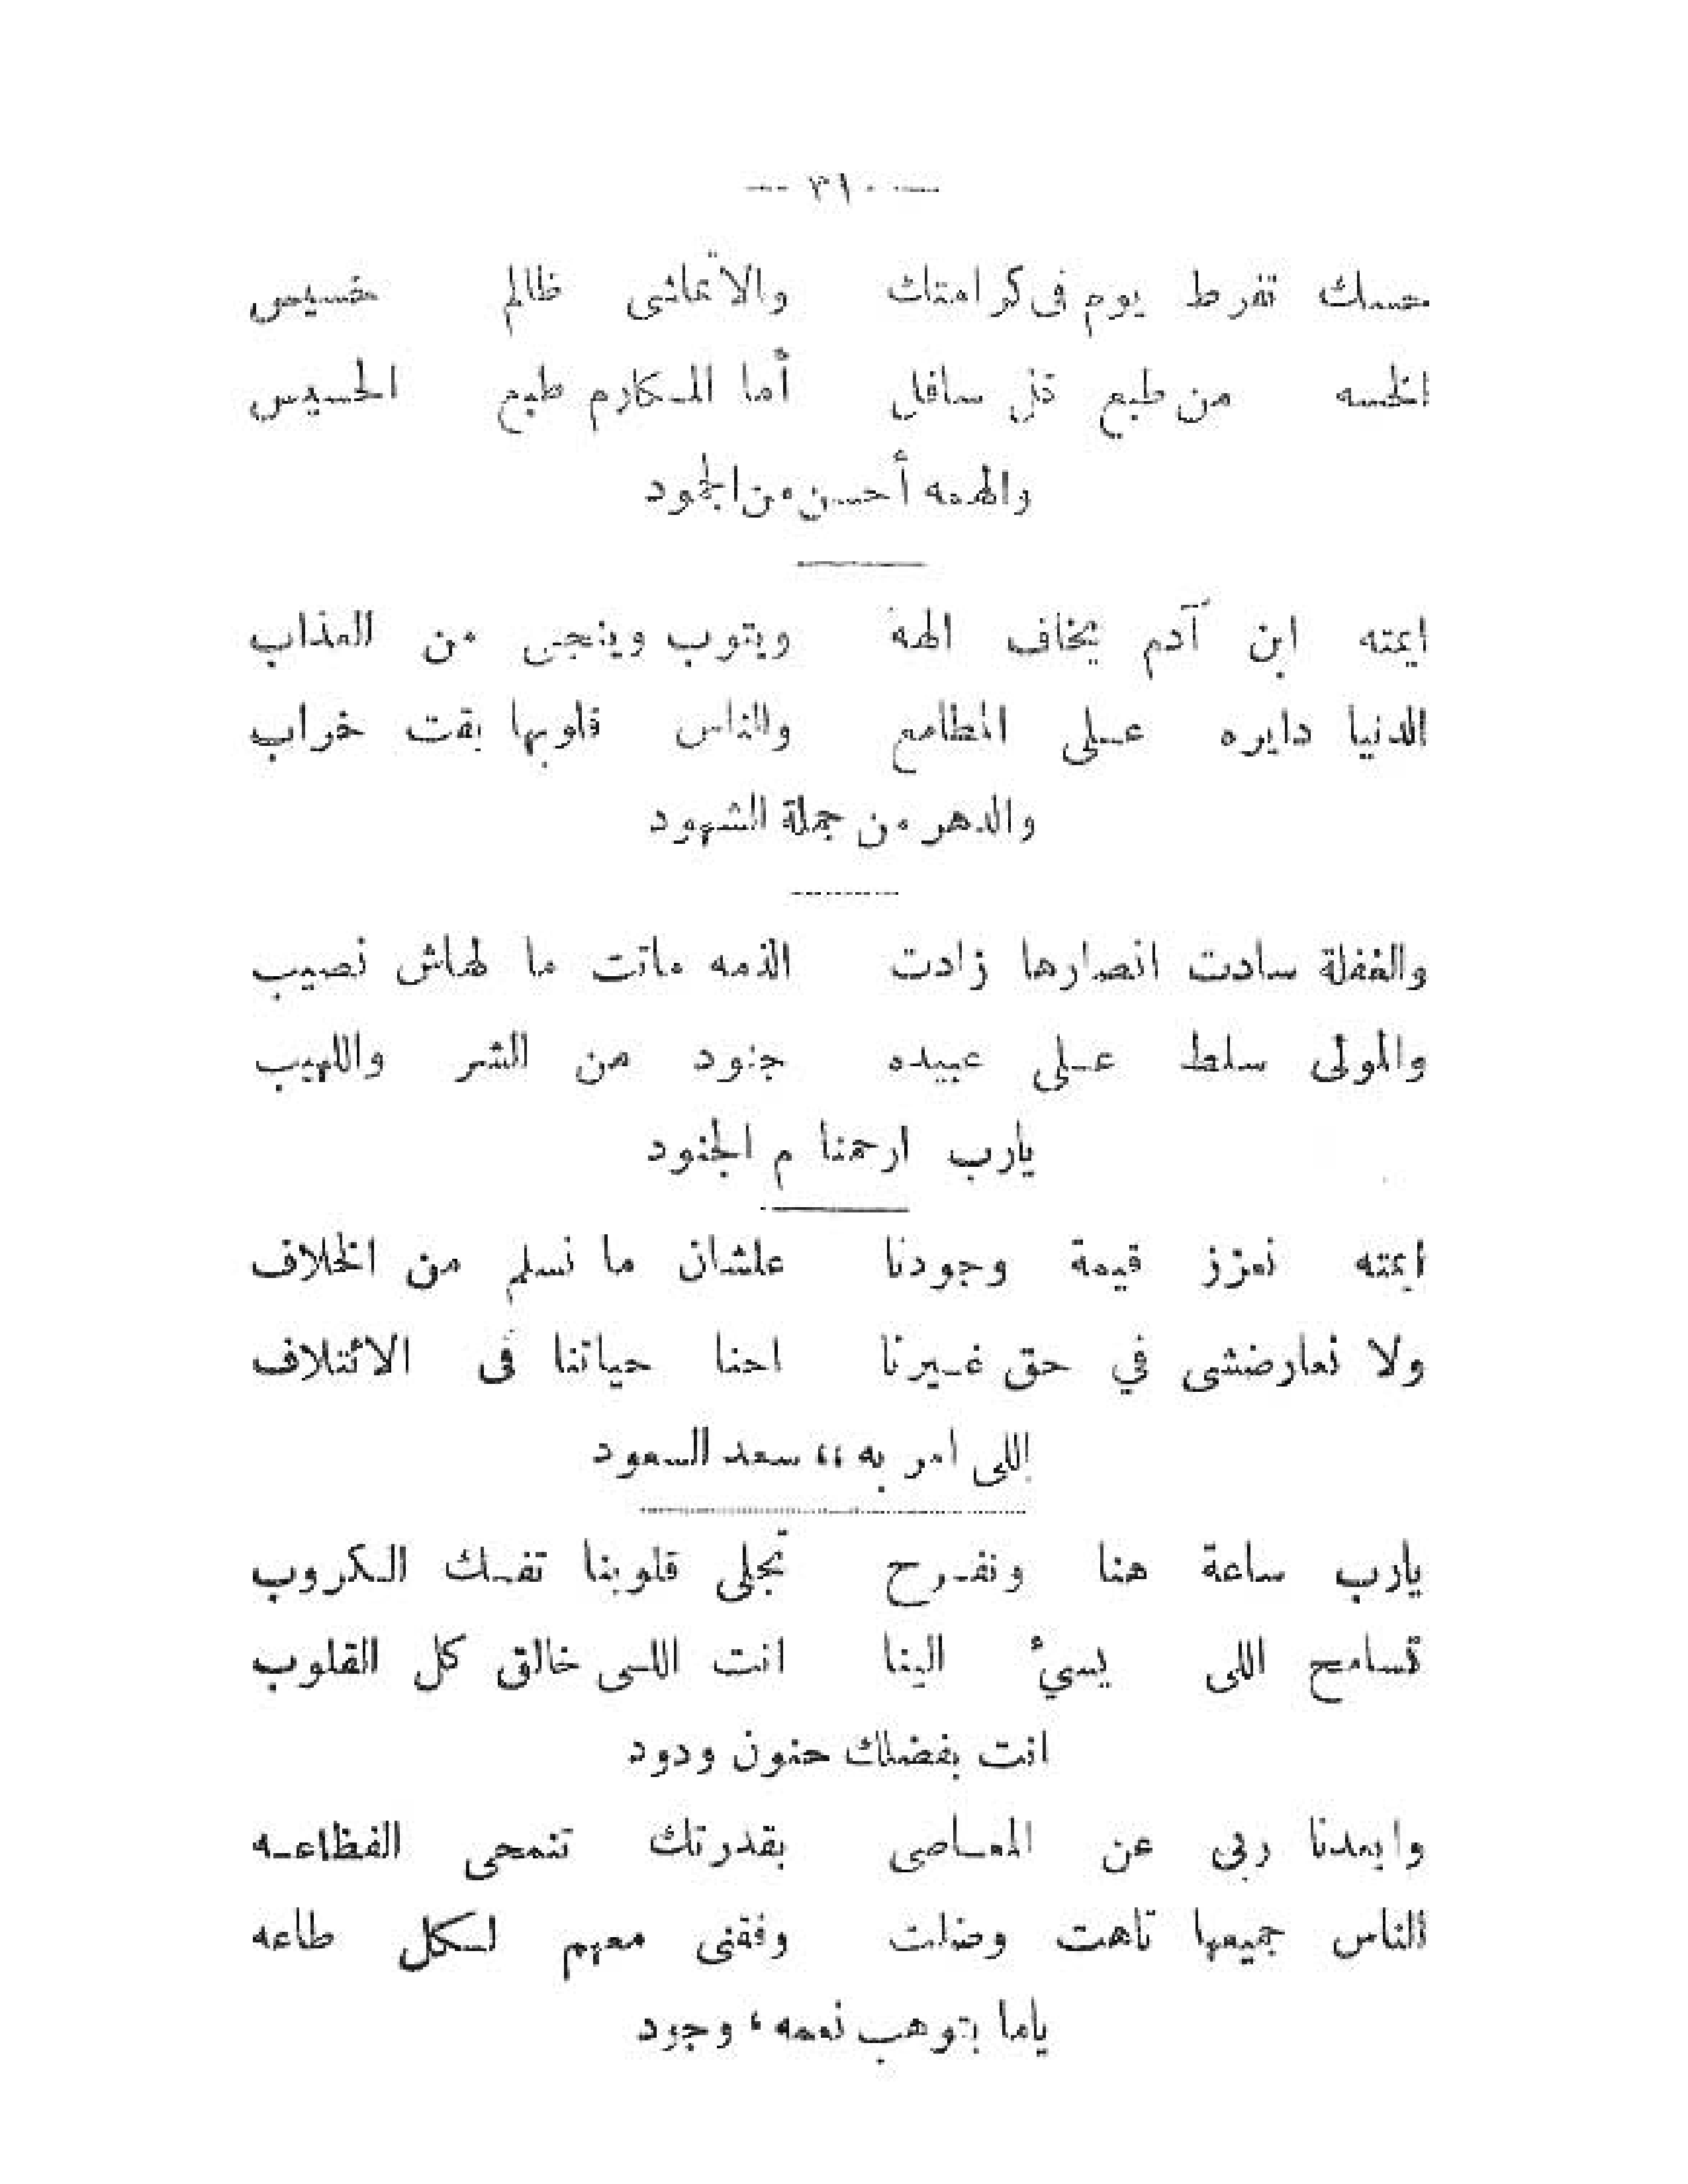 — ٣١٠ —
حسك تفرط يوم فى كرامتك والا تماشى ظالم خسيس
الخسه من طبع نذل سافل أما المكارم طبع الحسيس
والهمه أحسن من الجمود
ايمته ابن آدم يخاف الهه ويتوب وينجى من العذاب
الدنيا دايره على المطامع والناس قلوبها بقت خراب
والدهر من جملة الشهود
والغفلة سادت انصارها زادت الذمه ماتت ما لهاش نصيب
والمولى سلط على عبيده جنود من الشر واللهيب
يارب ارحمنا م الجنود
ايمته نعزز قيمة وجودنا علشان ما نسلم من الخلاف
ولا نعارضشى في حق غيرنا احنا حياتنا فى الائتلاف
اللى امر به ،، سعد السعود
يارب ساعة هنا ونفرح تجلى قلوبنا تفك الكروب
تسامح اللى يسيء الينا انت اللى خالق كل القلوب
انت بفضلك حنون ودود
وابعدنا ربى عن المعاصى بقدرتك تنمحى الفظاعه
الناس جميعها تاهت وضلت وفقنى معهم لكل طاعه
ياما بتوهب نعمه ، وجود